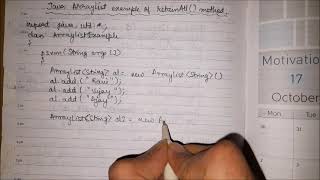 Java ArrayList example of retainAll() method.
import java.util.*;
class ArraylistExample
{
psvm (String args [])
{
ArrayList<String> al = new ArrayList<String>()
al.add ("Ravi");
al.add ("Vijay");
al.add ("Ajay");
ArrayList<String> al2 = new A
Motivatio
17
October
MON
TUE